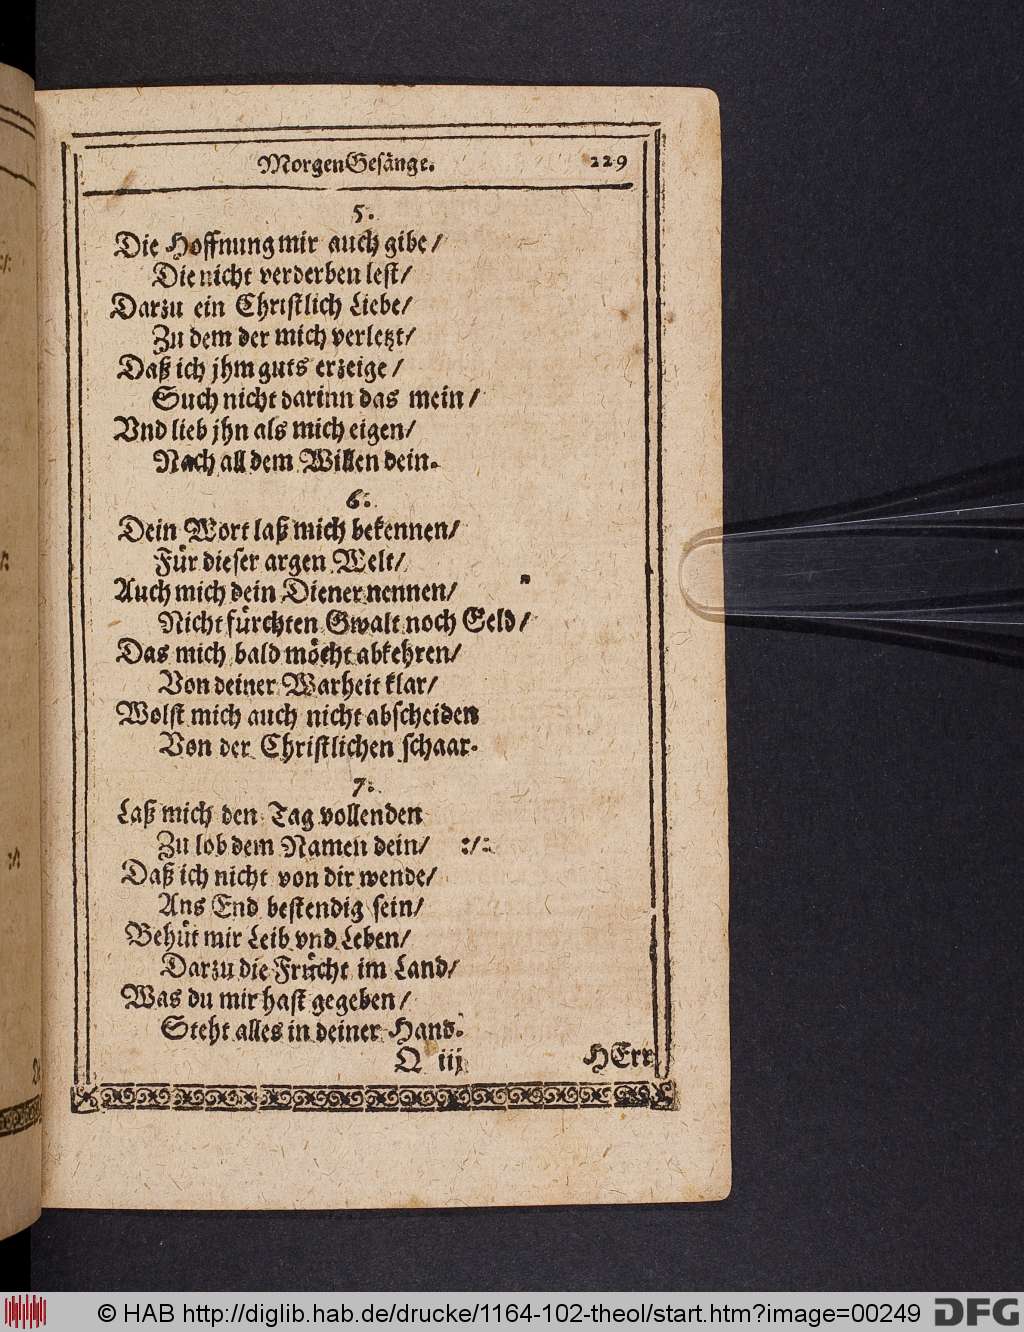 MorgenGesänge. 229
5.
Die Hoffnung mir auch gibe/
Die nicht verderben lest/
Darzu ein Christlich Liebe/
Zu dem der mich verletzt/
Daß ich jhm guts erzeige/
Such nicht darinn das mein/
Vnd lieb jhn als mich eigen/
Nach all dem Willen dein.
6.
Dein Wort laß mich bekennen/
Für dieser argen Welt/
Auch mich dein Diener nennen/
Nicht fürchten Gwalt noch Geld/
Das mich bald möcht abkehren/
Von deiner Warheit klar/
Wolst mich auch nicht abscheiden
Von der Christlichen schaar.
7.
Laß mich den Tag vollenden
Zu lob dem Namen dein/ :/:
Daß ich nicht von dir wende/
Ans End bestendig sein/
Behüt mir Leib vnd Leben/
Darzu die Frücht im Land/
Was du mir hast gegeben/
Steht alles in deiner Hand.
Q iij HErr
© HAB http://diglib.hab.de/drucke/1164-102-theol/start.htm?image=00249 DFG